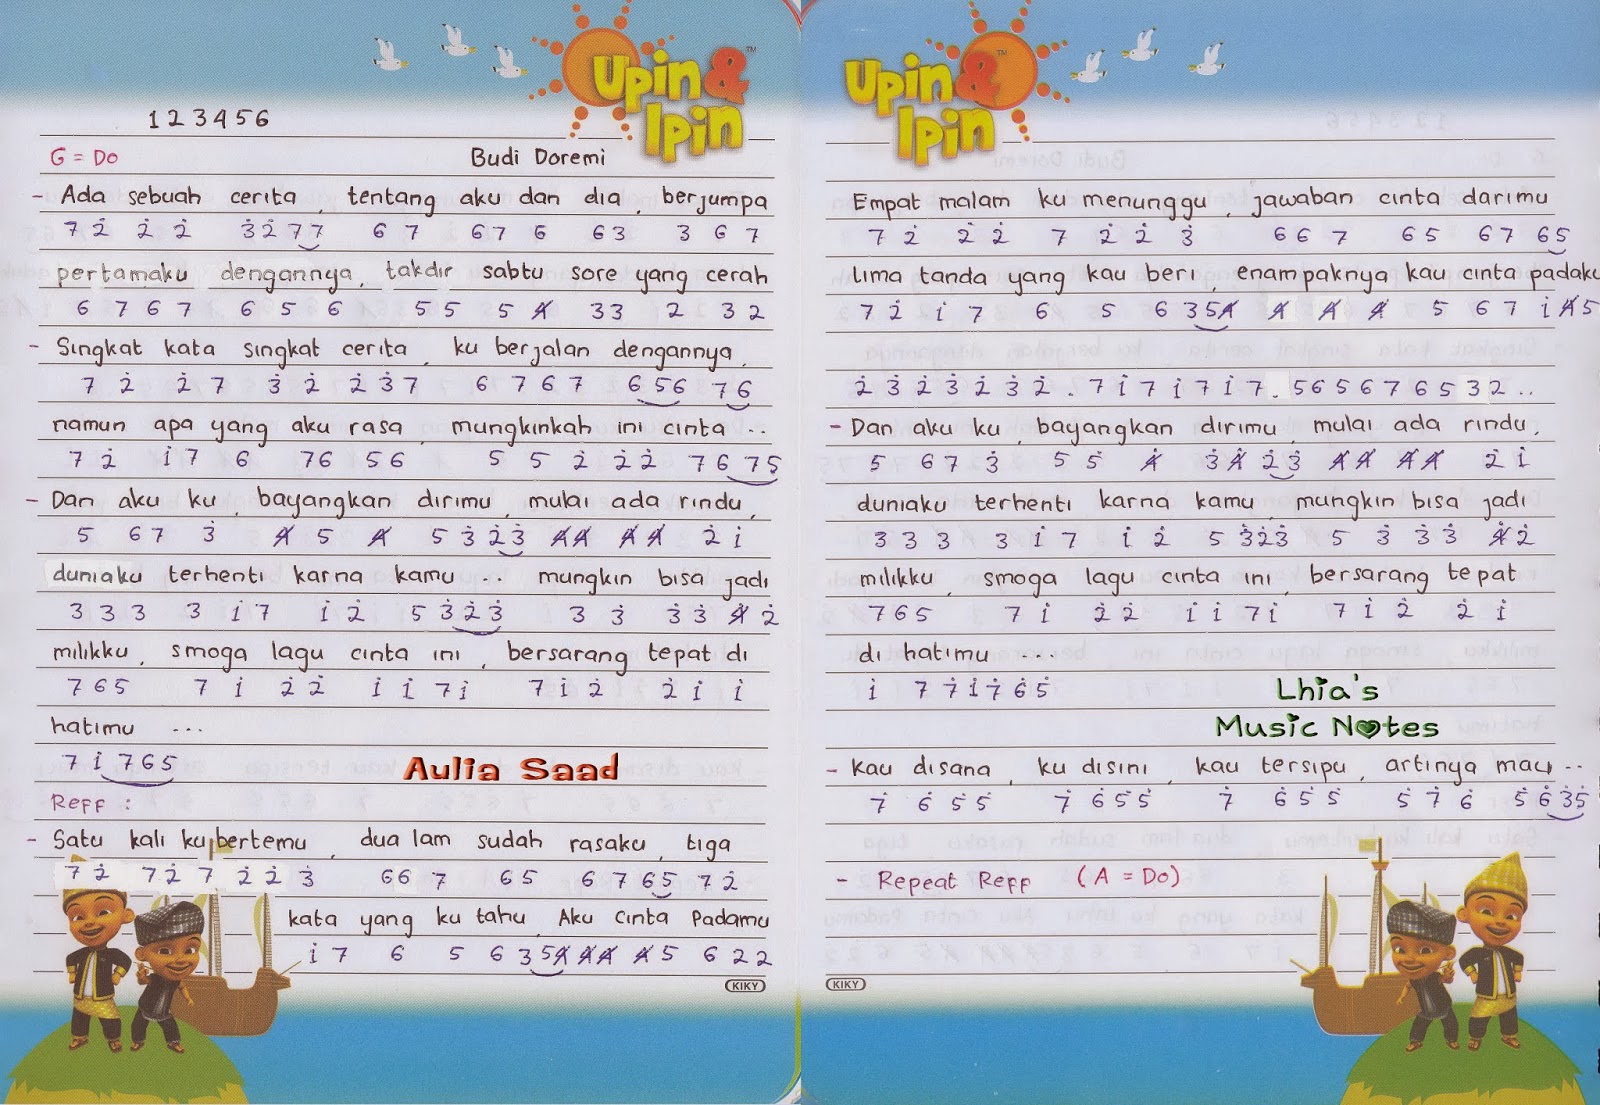 Upin & Ipin ™
1 2 3 4 5 6
G = Do Budi Doremi
- Ada sebuah cerita, tentang aku dan dia, berjumpa
7 2̇ 2̇ 2̇ 3̇ 2̇ 7 7 6 7 6 7 6 6 3 3 6 7
pertamaku dengannya, takdir sabtu sore yang cerah
6 7 6 7 6 5 6 5 5 5 4̸ 3 3 2 3 2
- Singkat kata singkat cerita, ku berjalan dengannya,
7 2̇ 2̇ 7 3̇ 2̇ 2̇ 3̇ 7 6 7 6 7 6 5 6 7 6
namun apa yang aku rasa, mungkinkah ini cinta ..
7 2̇ 1̇ 7 6 7 6 5 6 5 5 2̇ 2̇ 2̇ 7 6 7 5
- Dan aku ku, bayangkan dirimu, mulai ada rindu,
5 6 7 3̇ 4̸ 5 4̸ 5 3̇ 2̇ 3̇ 4̸ 4̸ 4̸ 4̸ 2̇ 1̇
duniaku terhenti karna kamu .. mungkin bisa jadi
3 3 3 3 1̇ 7 1̇ 2̇ 5 3̇ 2̇ 3̇ 3 3̇ 3̇ 3̇ 4̸ 2̇
milikku, smoga lagu cinta ini, bersarang tepat di
7 6 5 7 1̇ 2̇ 2̇ 1̇ 1̇ 7 1̇ 7 1̇ 2̇ 2̇ 1̇ 1̇
hatimu ...
7 1̇ 7 6 5
Aulia Saad
Reff :
- Satu kali ku bertemu, dua lam sudah rasaku, tiga
7 2̇ 7 2̇ 7 2̇ 2̇ 3̇ 6 6 7 6 5 6 7 6 5 7 2̇
kata yang ku tahu, Aku Cinta Padamu
1̇ 7 6 5 6 3 5 4̸ 4̸ 4̸ 4̸ 5 6 2 2
KIKY
Upin & Ipin ™
Empat malam ku menunggu, jawaban cinta darimu
7 2̇ 2̇ 2̇ 7 2̇ 2̇ 3̇ 6 6 7 6 5 6 7 6 5
Lima tanda yang kau beri, enampaknya kau cinta padaku
7 2̇ 1̇ 7 6 5 6 3 5 4̸ 4̸ 4̸ 4̸ 5 6 7 1̇ 4̸ 5
2̇ 3̇ 2̇ 3̇ 2̇ 3̇ 2̇ . 7 1̇ 7 1̇ 7 1̇ 7 . 5 6 5 6 7 6 5 3 2 ..
- Dan aku ku, bayangkan dirimu, mulai ada rindu,
5 6 7 3̇ 5 5 4̸ 3̇ 4̸ 2̇ 3̇ 4̸ 4̸ 4̸ 4̸ 2̇ 1̇
duniaku terhenti karna kamu, mungkin bisa jadi
3 3 3 3 1̇ 7 1̇ 2̇ 5 3̇ 2̇ 3̇ 5 3̇ 3̇ 3̇ 4̸ 2̇
milikku, smoga lagu cinta ini, bersarang tepat
7 6 5 7 1̇ 2̇ 2̇ 1̇ 1̇ 7 1̇ 7 1̇ 2̇ 2̇ 1̇
di hatimu ....
1̇ 7 7 1̇ 7 6 5
Lhia's
Music Notes
- Kau disana, ku disini, kau tersipu, artinya mau ..
7 6 5 5 7 6 5 5 7 6 5 5 5 7 6 5 6 3 5
- Repeat Reff (A = Do)
KIKY